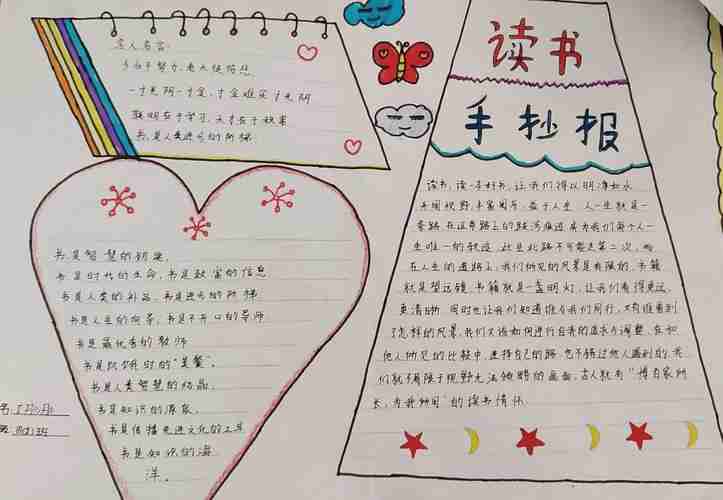 名人名言:
少小不努力,老大徒伤悲
一寸光阴一寸金,寸金难买寸光阴
聪明在于学习,天才在于积累
书,是人类进步的阶梯
读书
手抄报
读书,读一本好书,让我们得以明净如水
开阔视野,丰富阅历,益于人生 人一生就是一
条路,在这条路上的跋涉痕迹成为我们每个人一
生唯一的轨迹,此生此路不可能走第二次,而
在人生的道路上,我们所见的风景是有限的,书籍
就是望远镜,书籍就是一盏明灯,让我们看得更远,
更清晰 同时也让我们知道谁与我们同行,又有谁看到
了怎样的风景,我们又该如何进行自我的追求与调整,在和
他人所见的比较中,选择自己的路,也不错过他人看到的,我
们就不局限于视野无法领略的画面,古人就有“博百家所
长,为我所用”的读书情怀
书是智慧的钥匙
书是时代的生命,书是致富的信息
书是人类的礼品,书是进步的阶梯
书是人生的向导,书是不开口的导师
书是最优秀的教师
书是饥饿时的“美餐”。
书是人类智慧的结晶,
书是知识的源泉,
书是传播先进文化的工具
书是知识的海
洋。